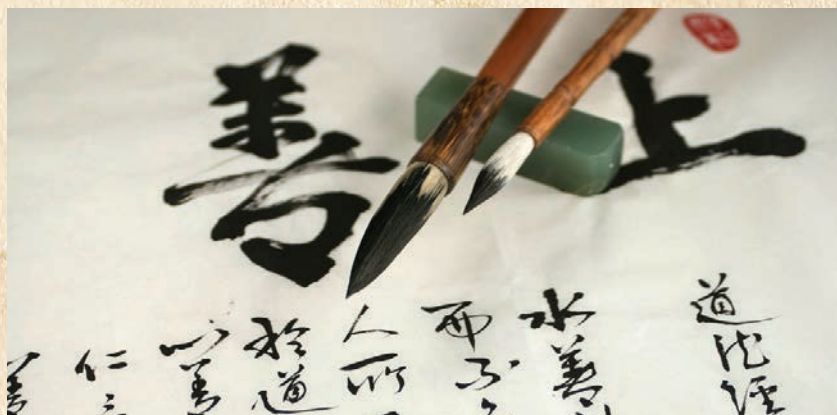 上善
道德經
水善
而不
人所
於道
心善
仁言
善